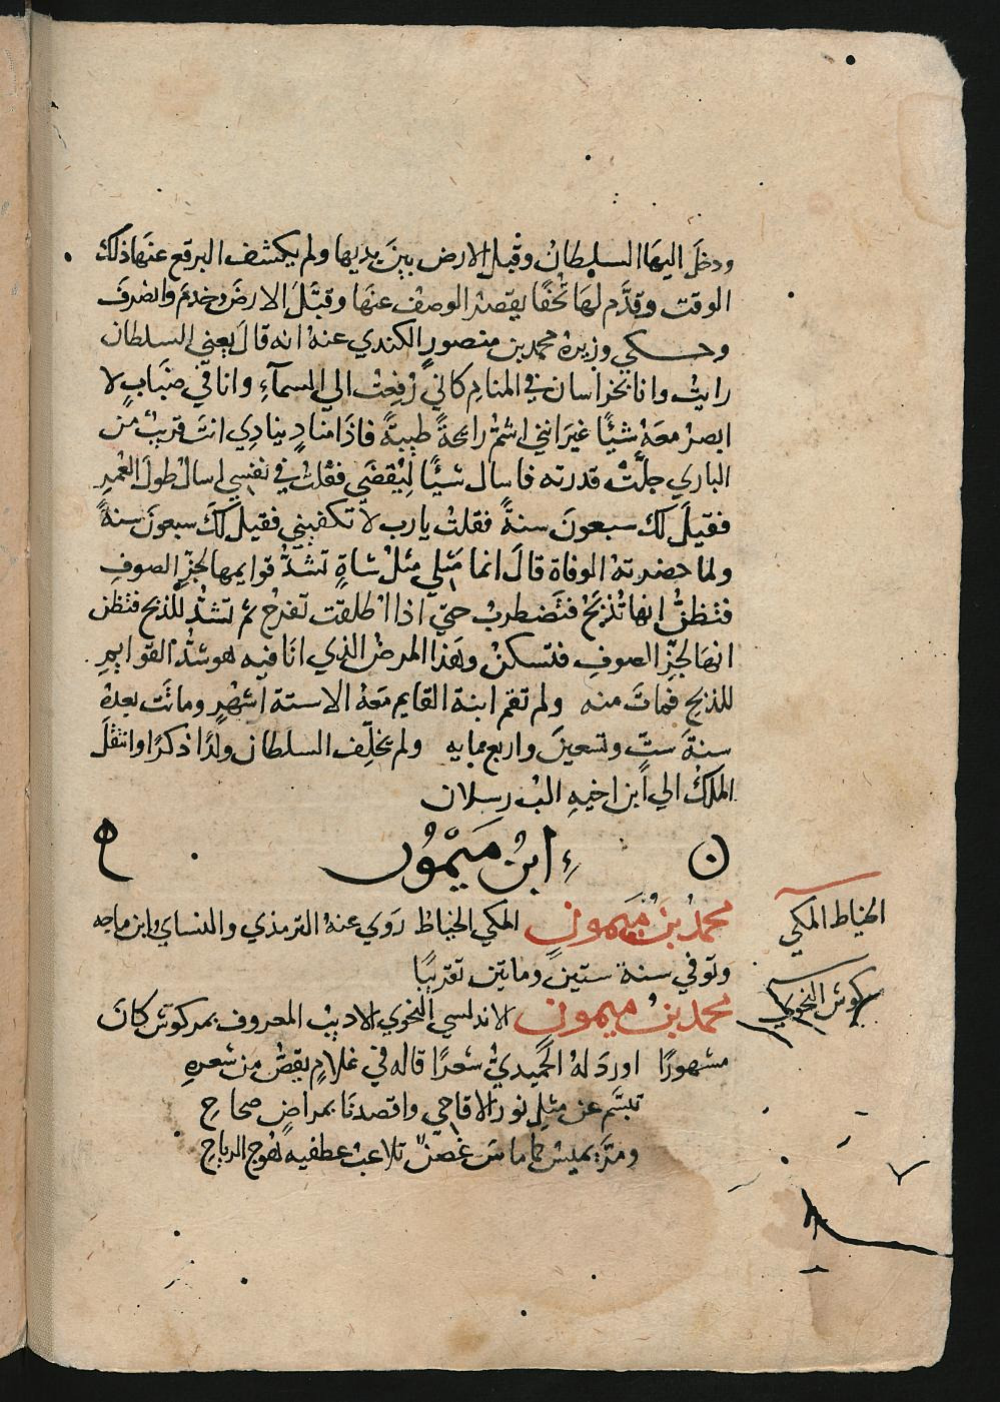 ودخلَ اليهَا السلطانُ وقبل الارض بينَ يديها ولم يكشف البرقع عنهَا ذلك
الوقت وقدَّم لهَا تحفًا يقصرُ الوصف عنهَا وقبَّلَ الارضَ وخدمَ وانصرفَ
وحكي وزيرهُ محمد بن منصورٍ الكندي عنه انه قالَ يعني السلطان
رايتُ وانا بخراسان في المنامِ كاني رُفعِتُ الي السمآءِ وانا في ضبابٍ لا
ابصرُ معَهُ شئًا غيرَ انني اشمُّ رائحةً طيبةً فاذَا منادٍ ينادي انتَ قريبٌ من
الباري جلَّتْ قدرته فاسال شئًا ليُقضَي فقلتُ في نفسِي اسالُ طولَ العُمرِ
فقيلَ لكَ سبعونَ سنةً فقلتُ يارب لا تكفيني فقيلَ لكَ سبعونَ سنةً
ولما حضرتهُ الوفاة قالَ انما مَثَلِي مثلُ شاةٍ تشدُّ قوايمها لجزِّ الصوفِ
فتظنُّ انها تُذبَحُ فتَضطربُ حتيّ اذا اُطلقت تفرحُ ثم تشدُّ للذبح فتظن
انها لجزِّ الصوفِ فتسكنُ وهذا المرضُ الذي انَا فيه هو شدُّ القوايمِ
للذبحِ فماتَ منه ولم تقم ابنة القايم مَعهُ الا ستة اشهُرٍ وماتَت بعدهُ
سنةَ ستٍّ وتسعينَ واربع مايه ولم يخلِّف السلطان ولدًا ذكرًا وانتقلَ
الملكُ الي ابن اخيهِ الب رسلان
ابنُ مَيْمُون
محمدُ بنُ ميمون المكي الخياط روَي عنهُ الترمذي والنساي وابن ماجه
الخياط المكي
وتوفي سنة ستينَ ومايتين تقريبًا
محمدُ بنُ ميمون الاندلسي النحوي الاديبُ المعروف بمركوش كانَ
مركوش النحوي
مشهورًا اوردَ لهُ الحُميديُّ شعرًا قاله في غلامٍ يقصُّ من شعرهِ
تبسَّم عن مثلِ نور الاقاحي واقصدنَا بمراضٍ صحاحِ
ومرَّ يميسُ كما ماسَ غصنٌ تلاعبُ عطفيه هُوج الرياحِ